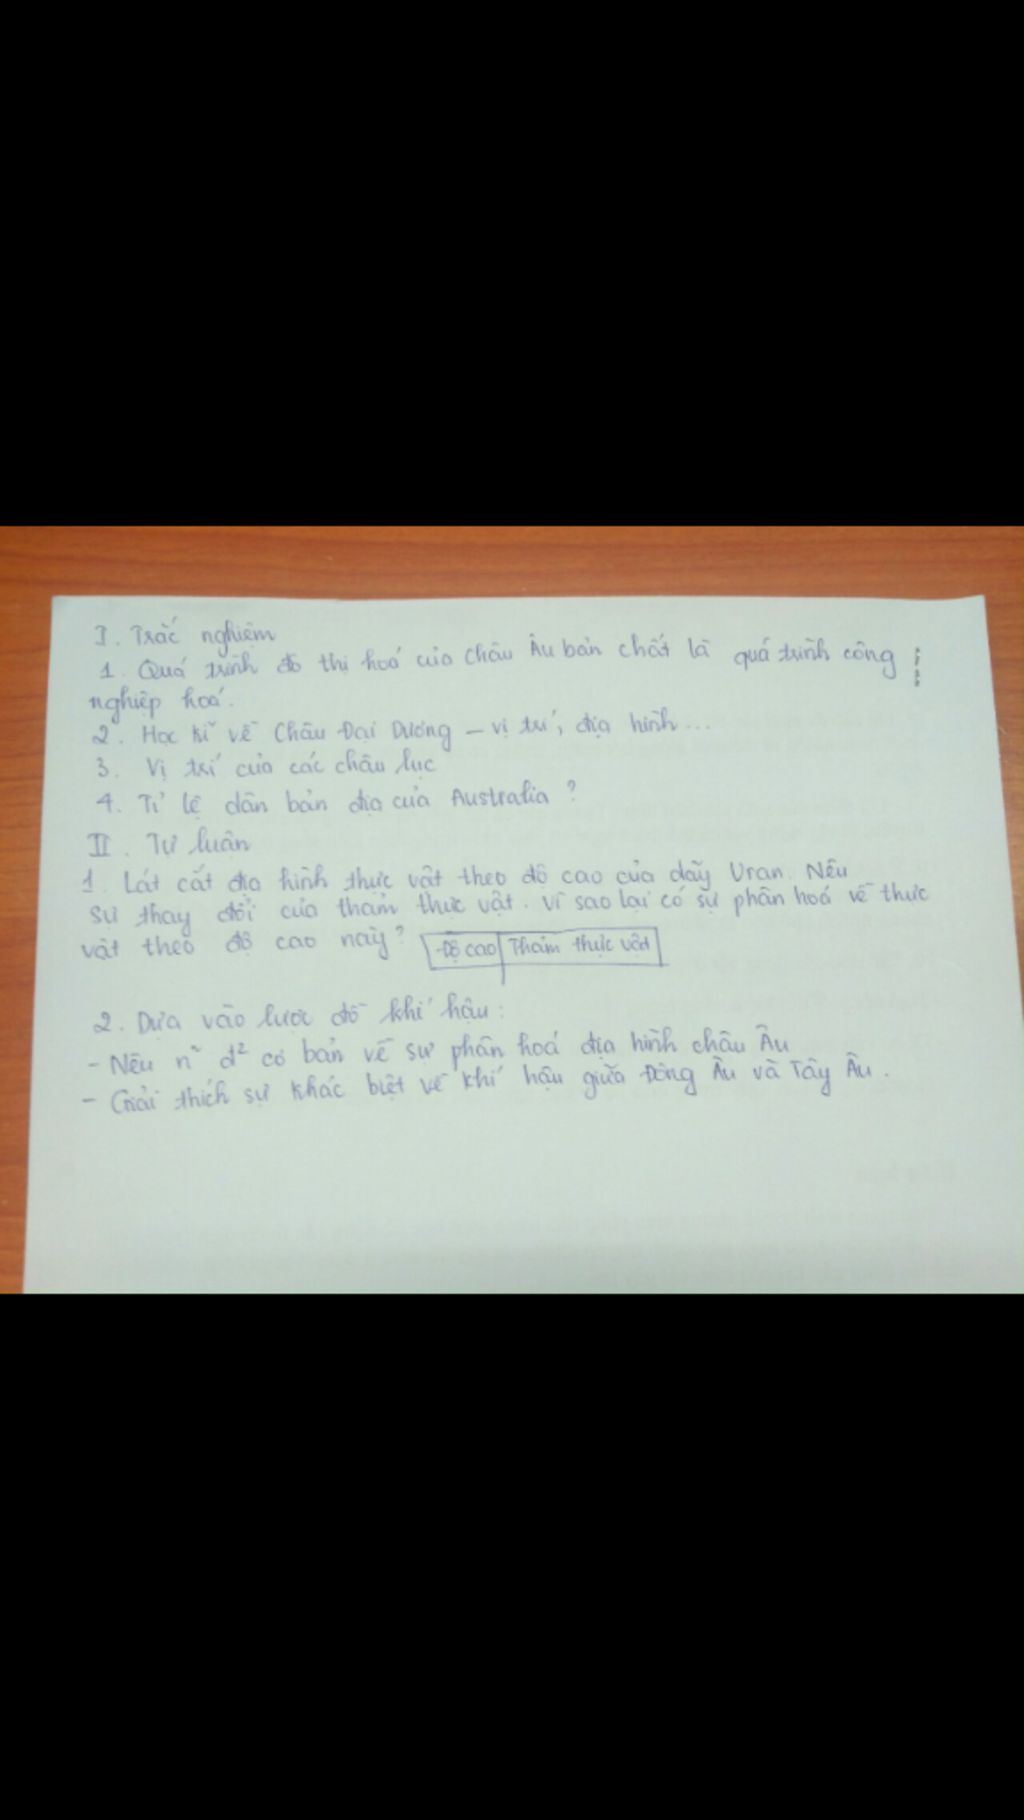 I. Trắc nghiệm
1. Quá trình đô thị hoá của Châu Âu bản chất là quá trình công
nghiệp hoá.
2. Học kĩ về Châu Đại Dương – vị trí, địa hình...
3. Vị trí của các châu lục
4. Tỉ lệ dân bản địa của Australia ?
II. Tự luận
1. Lát cắt địa hình thực vật theo độ cao của dãy Uran. Nêu
sự thay đổi của thảm thực vật. Vì sao lại có sự phân hoá về thực
vật theo độ cao này? Độ cao Thảm thực vật
2. Dựa vào lược đồ khí hậu:
- Nêu n~ đ² cơ bản về sự phân hoá địa hình châu Âu
- Giải thích sự khác biệt về khí hậu giữa Đông Âu và Tây Âu.